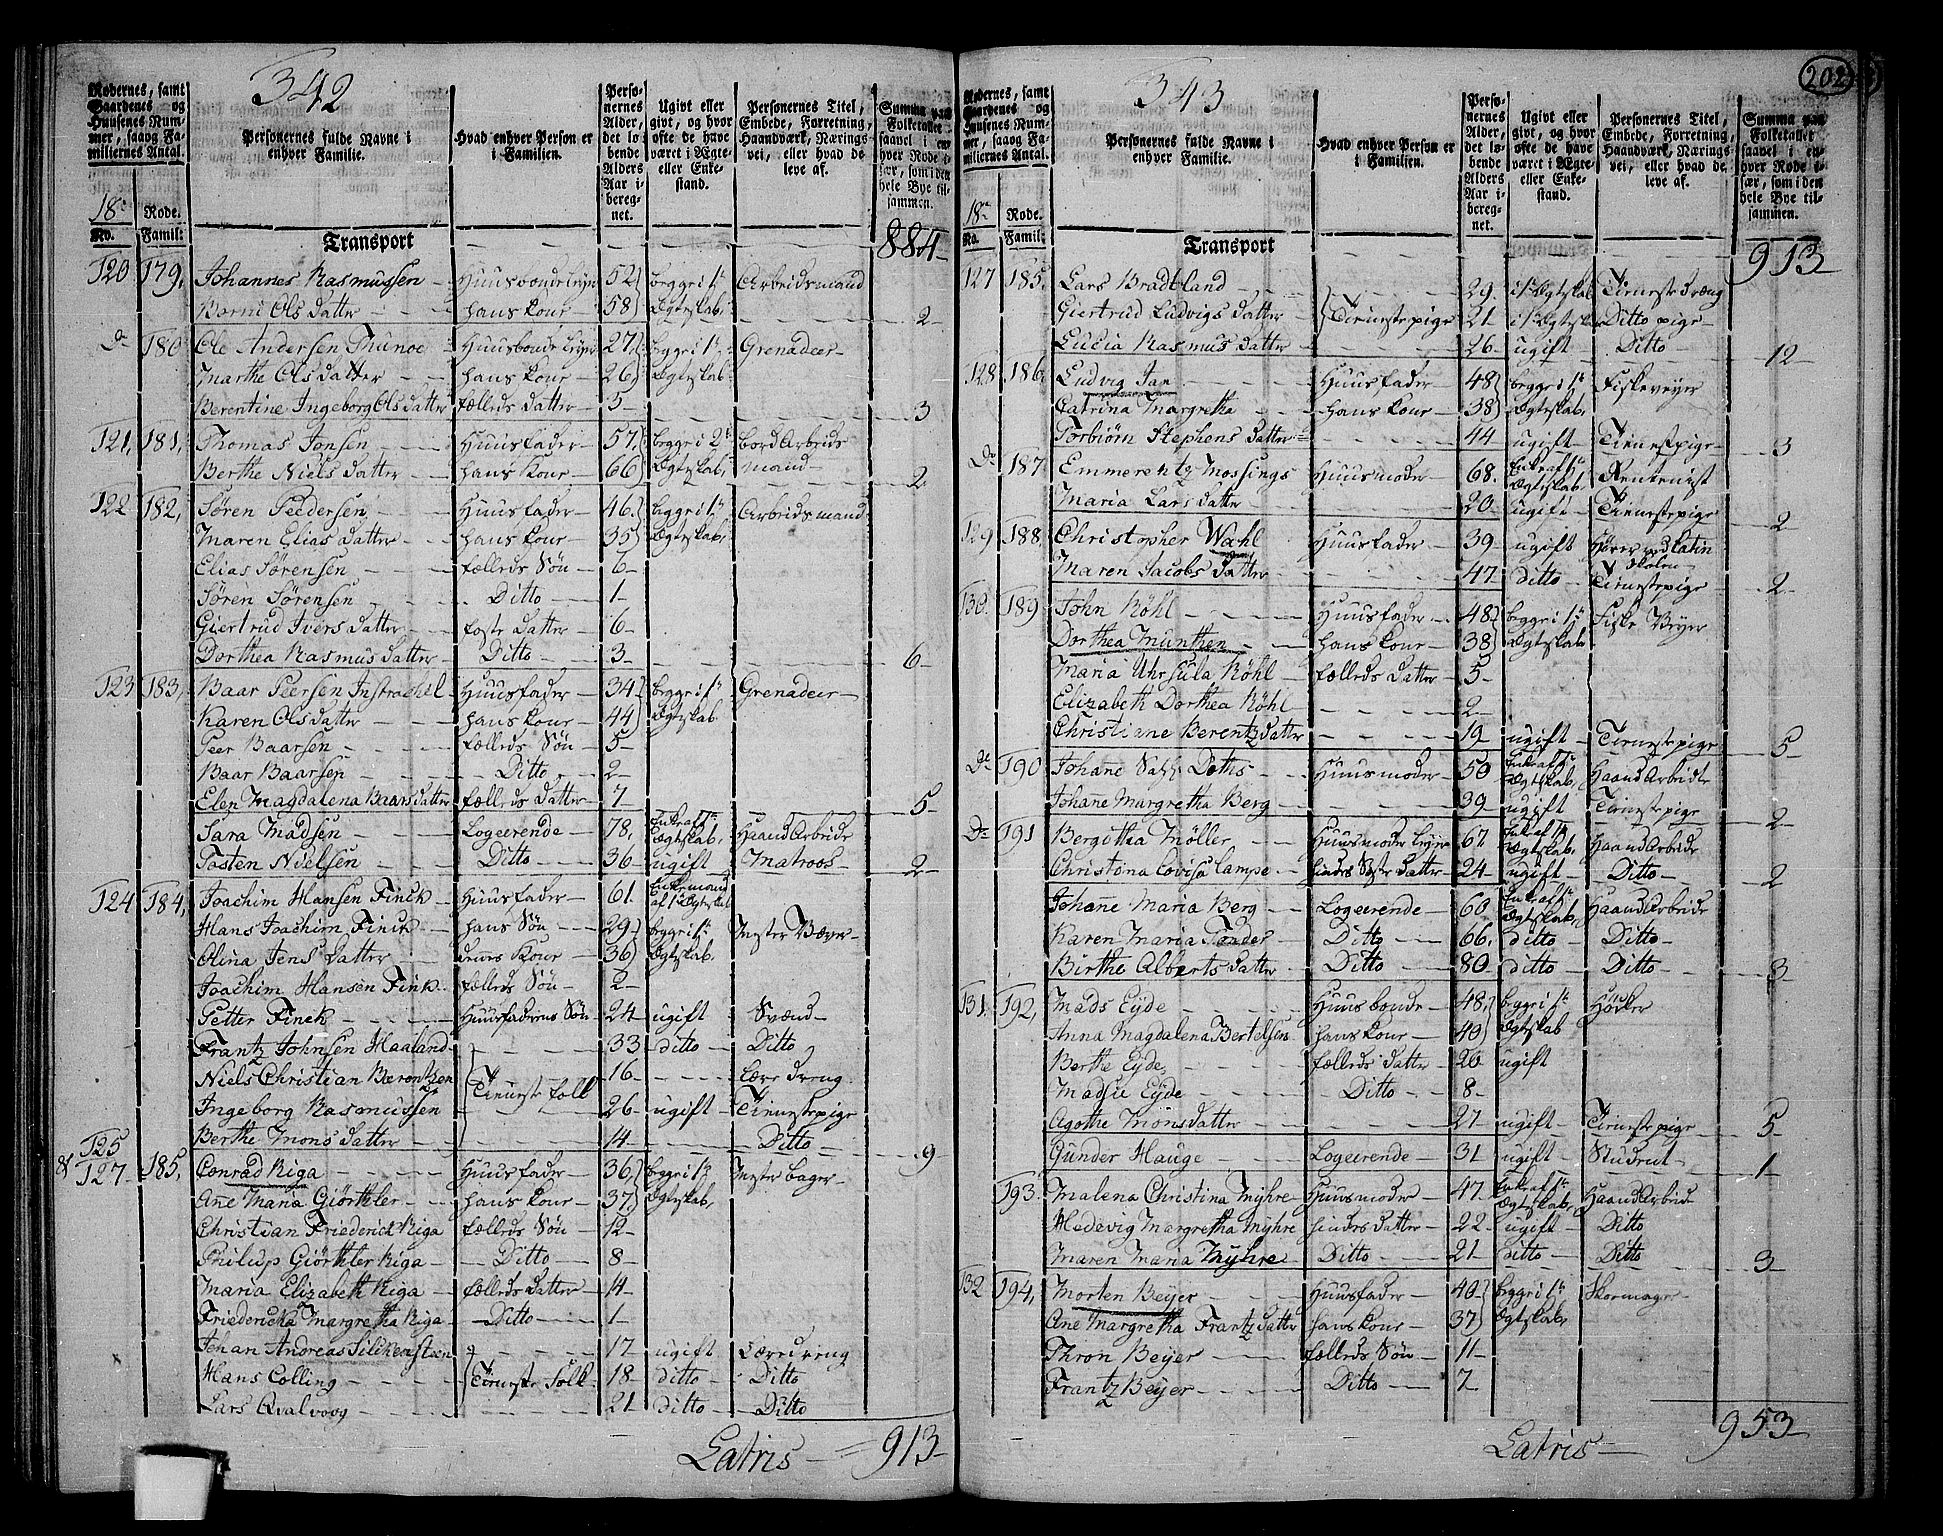 202
342
Rodernes, samt Gaardenes og Huusenes Nummer, saavog Familiernes Antal.
Personernes fulde Navne i enhver Familie.
Hvad enhver Person er i Familien.
Personernes Alder, det løbende Alders Aar iberegnet.
Ugivt eller givt, og hvor ofte de have været i Ægte- eller Enkestand.
Personernes Titel, Embede, Forretning, Haandværk, Næringsvei, eller hvad de leve af.
Summa paa Folketallet saavel i enhver Rode især, som i den hele Bye tilsammen.
18e Rode.
No. Famil:
Transport 884
120 179, Johannes Rasmussen Huusbonde 52 begge i 1te Arbeidsmand
Berni Ols datter hans Kone 58 Ægteskab, 2
do 180 Ole Andersen Thunoe Huusbonde 27, begge i 1te Grenadeer
Marthe Ols datter hans Kone 26 Ægteskab
Berentine Ingeborg Ols datter fælleds datter 5 3
121, 181, Thomas Jonsen Huusfader 57, begge i 2t bord Arbeids
Berthe Niels datter hans Kone 66 Ægteskab, mand 2
122 182, Søren Peedersen Huusfader 46, begge i 1te Arbeidsmand
Maren Elias datter hans Kone 35 Ægteskab,
Elias Sørensen fælleds Søn 6
Søren Sørensen Ditto 1
Giertrud Ivers datter foste datter 6
Dorthea Rasmus datter Ditto 3 6
123 183, Baar Peersen Huusfader 34 begge i 1te Grenadeer
Karen Ols datter hans Kone 44 Ægteskab
Peer Baarsen fælleds Søn 5
Baar Baarsen Ditto 2
Elen Magdalena Baars datter fælleds datter 7 5
Sara Madsen Logeerende 78, Enke af 1te Ægteskab, Haand Arbeide
Tosten Nielsen Ditto 36 ugift Matroos 2
124 184, Joachim Hansen Finck Huusfader 61 Enkemand af 1 Ægteskab
Hans Joachim Finck hans Søn 29 begge i 1te Mester Væver
Olina Jens datter dennes Kone 36 Ægteskab,
Joachim Hansen Finck fælleds Søn 2
Petter Finck Huusfaderens Søn 24 ugift Svend
Frantz Johnsen Haaland 33 ditto Ditto
Niels Christian Berentzen Tieneste folk 16 Lære dreng
Ingeborg Rasmussen 26 ugift Tienestepige
Berthe Mons datter 14 Ditto 9
125
& 127 185, Conrad Riga Huusfader 36, begge i 1te Mester bager
Ane Maria Giörtler hans Kone 37 Ægteskab,
Christian Friederick Riga fælleds Søn 12
Philup Giörtler Riga Ditto 8
Maria Elizabeth Riga fælleds datter 4
Friedericka Margretha Riga Ditto 1
Johan Andreas Silckensteen 17 ugift Læredreng
Hans Colling Tieneste Folk 18 ditto Ditto
Lars Qvalvoog 21 ditto Ditto
Latris 913
343
Rodernes, samt Gaardenes og Huusenes Nummer, saavog Familiernes Antal.
Personernes fulde Navne i enhver Familie.
Hvad enhver Person er i Familien.
Personernes Alder, det løbende Alders Aar iberegnet.
Ugivt eller givt, og hvor ofte de have været i Ægte- eller Enkestand.
Personernes Titel, Embede, Forretning, Haandværk, Næringsvei, eller hvad de leve af.
Summa paa Folketallet saavel i enhver Rode især, som i den hele Bye tilsammen.
18e Rode.
No. Famil:
Transport 913
127 185, Lars Bradtland 29 i 1te Ægteskab Tienestedræng
Giertrud Ludvigs datter Tienestepige 21 i 1te Ægteskab Ditto pige
Lucia Rasmus datter 26 ugift Ditto 12
128 186, Ludvig Jan Huusfader 48 begge i 1te Fiskeveyer
Catrina Margretha hans Kone 38 Ægteskab,
Torbiörn Stephens datter 44 ugift Tienestepige 3
do 187 Emmerentz Mossings Huusmoder 68 Enke af 1te Ægteskab, Rentenist
Maria Lars datter 20 ugift Tienestepige 2
129 188, Christopher Wahl Huusfader 39 ugift Hører ved Latin Skolen
Maren Jacobs datter 47 ditto Tienestepige 2
130 189 John Röhl Huusfader 48 begge i 1te Fiske Veyer
Dorthea Munthen hans Kone 38 Ægteskab
Maria Uhrsula Röhl fælleds datter 5
Elizabeth Dorthea Röhl 2
Christiane Berentz datter 19 ugift Tienestepige 5
do 190 Johane Huusmoder 50 Enke af 1te Ægteskab, Haand Arbeide
Johane Margretha Berg 39 ugift Tienestepige 2
do 191 Bergitha Möller Huusmoder 67 Enke af 1te Ægteskab, Haand Arbeide
Christina Lovisa Lampe hindes Søster datter 24 ugift Ditto 2
Johane Maria Berg Logeerende 60 Enke af 1te Ægteskab, Haand Arbeide
Karen Maria Tønder Ditto 66, ditto Ditto
Birthe Alberts datter Ditto 80 ditto Ditto 3
131, 192, Mads Eyde Huusbonde 48, begge i 1te Höcker
Anna Magdalena Bertelsen hans Kone 40 Ægteskab
Berthe Eyde fælleds datter 20 ugift
Madsie Eyde Ditto 8
Agothe Monsdatter 27 ugift Tienestepige 5
Gunder Hauge Logeerende 31 ugift Student 1
193 Malena Christina Myhre Huusmoder 47 Enke af 1te Ægteskab, Haand Arbeide
Hedevig Margretha Myhre hindes datter 22 ugift Ditto
Maren Maria Myhre Ditto 21 ditto Ditto 3
132 194, Morten Beyer Huusfader 40 begge i 1te Skomager
Ane Margretha Frantz datter hans Kone 37 Ægteskab,
Thron Beyer fælleds Søn 11
Frantz Beyer Ditto 7
Latris 953